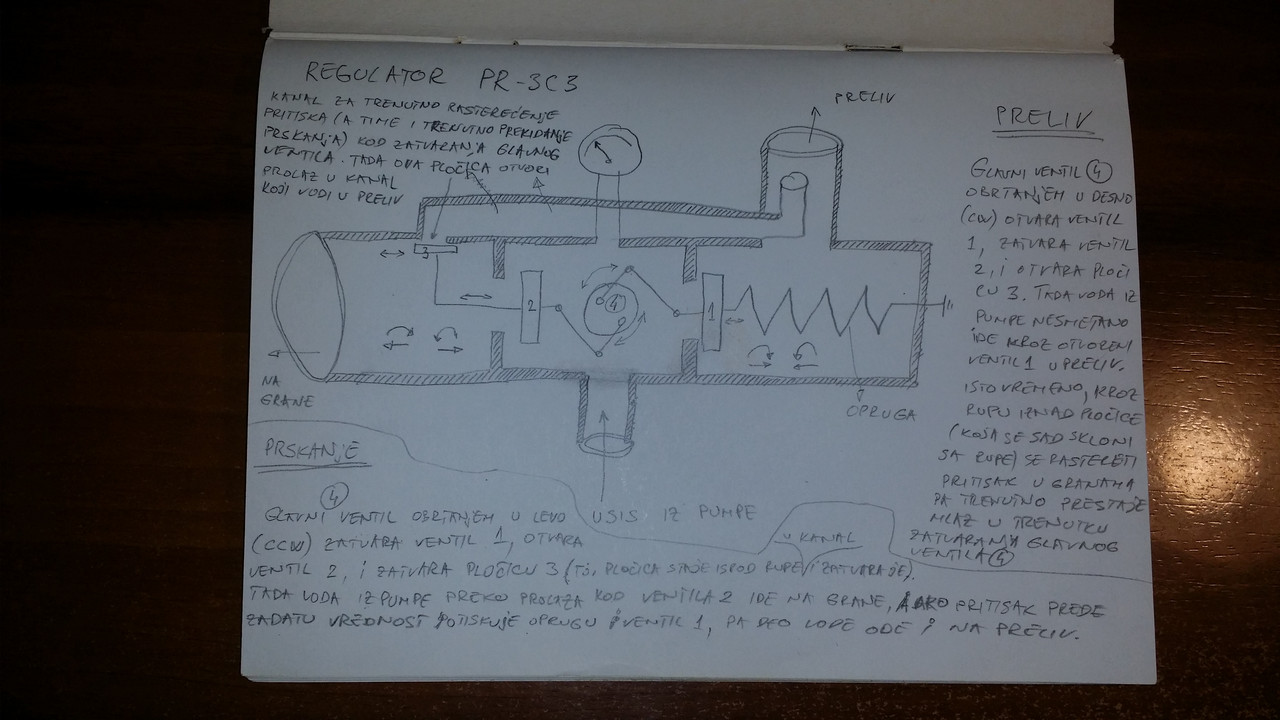 REGULATOR PR-3C3
KANAL ZA TRENUTNO RASTEREĆENJE
PRITISKA (A TIME I TRENUTNO PREKIDANJE
PRSKANJA) KOD ZATVARANJA GLAVNOG
VENTILA. TADA OVA PLOČICA OTVORI
PROLAZ U KANAL
KOJI VODI U PRELIV
PRELIV
3
2
4
1
NA
GRANE
OPRUGA
PRELIV
GLAVNI VENTIL 4
OBRTANJEM U DESNO
(CW) OTVARA VENTIL
1, ZATVARA VENTIL
2, I OTVARA PLOČI
CU 3. TADA VODA IZ
PUMPE NESMETANO
IDE KROZ OTVORENI
VENTIL 1 U PRELIV.
ISTOVREMENO, KROZ
RUPU IZNAD PLOČICE
(KOJA SE SAD SKLONI
SA RUPE) SE RASTERETI
PRITISAK U GRANAMA
PA TRENUTNO PRESTAJE
MLAZ U TRENUTKU
ZATVARANJA GLAVNOG
VENTILA 4
PRSKANJE
4
GLAVNI VENTIL OBRTANJEM U LEVO
(CCW) ZATVARA VENTIL 1, OTVARA
VENTIL 2, I ZATVARA PLOČICU 3 (TJ. PLOČICA STAJE ISPOD RUPE I ZATVARA JE).
U KANAL
TADA VODA IZ PUMPE PREKO PROLAZA KOD VENTILA 2 IDE NA GRANE, AKO PRITISAK PREĐE
ZADATU VREDNOST POTISKUJE OPRUGU I VENTIL 1, PA DEO VODE ODE I NA PRELIV.
USIS IZ PUMPE